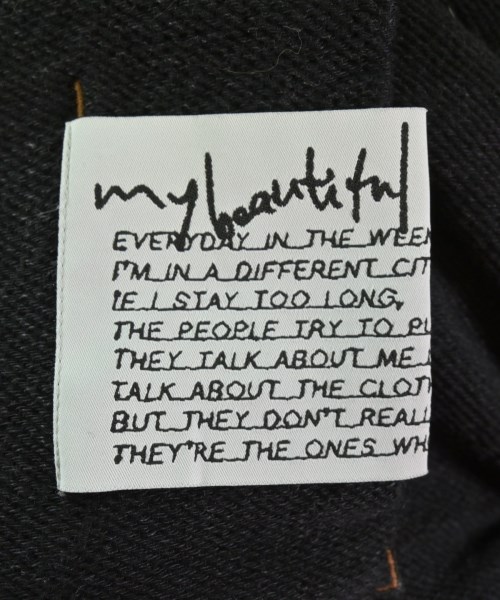 my beautiful
EVERYDAY IN THE WEEK
I'M IN A DIFFERENT CIT
IF I STAY TOO LONG,
THE PEOPLE TRY TO PU
THEY TALK ABOUT ME
TALK ABOUT THE CLOTH
BUT THEY DON'T REALL
THEY'RE THE ONES WH